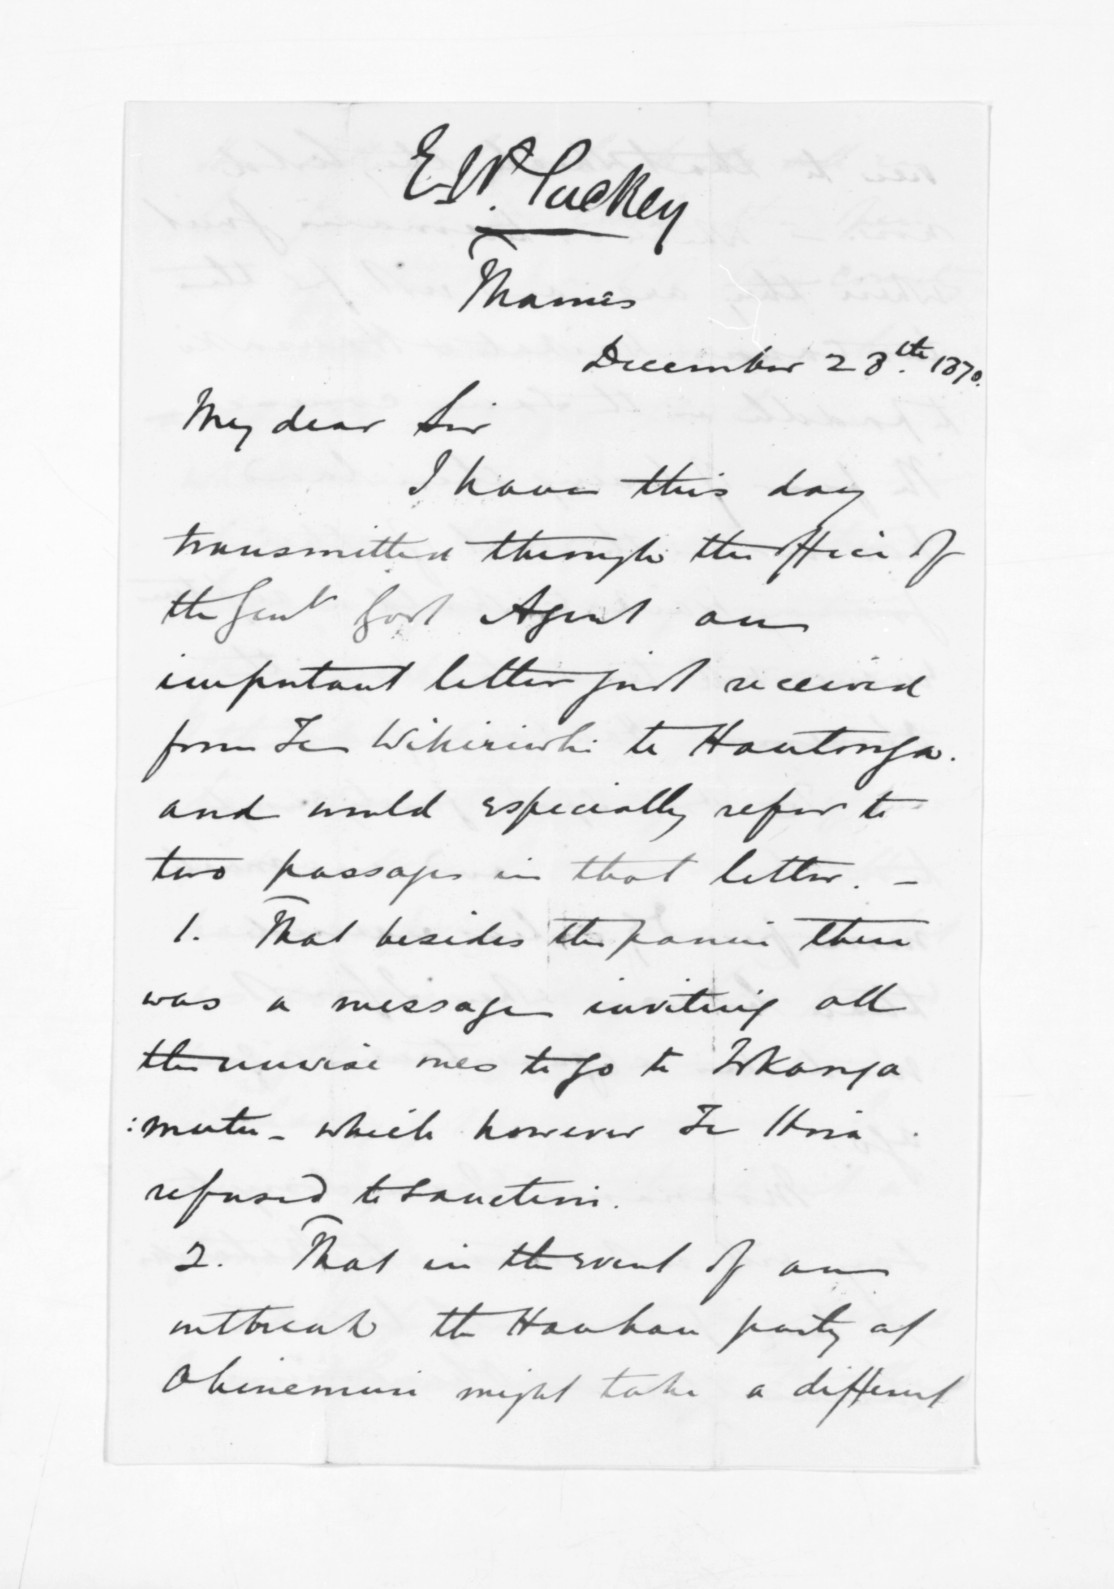 E. W. Puckey
Thames
December 28th. 1870.
My dear Sir
I have this day
transmitted through the office of
the Genl Govt Agent an
important letter just received
from Te Wikiriwhi te Hautonga.
and would especially refer to
two passages in that letter. –
1. That besides the panui there
was a message inviting all
the unwise ones to go to Tokanga
:mutu – which however Te Hira
refused to sanction.
2. That in the event of an
outbreak the Hauhau party at
Ohinemuri might take a different